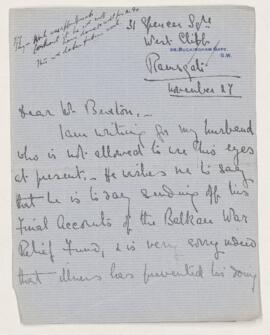 31 Spencer Sqre
West Cliff
Ramsgate
November 27
Dear Mr Buxton,
I am writing for my husband
who is not allowed to use his eyes
at present. He wishes me to say
that he is to day sending off his
Final Accounts of the Balkan War
Relief Fund, & is very sorry indeed
that illness has prevented his doing